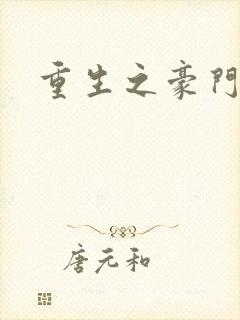 重生之豪門
唐元和